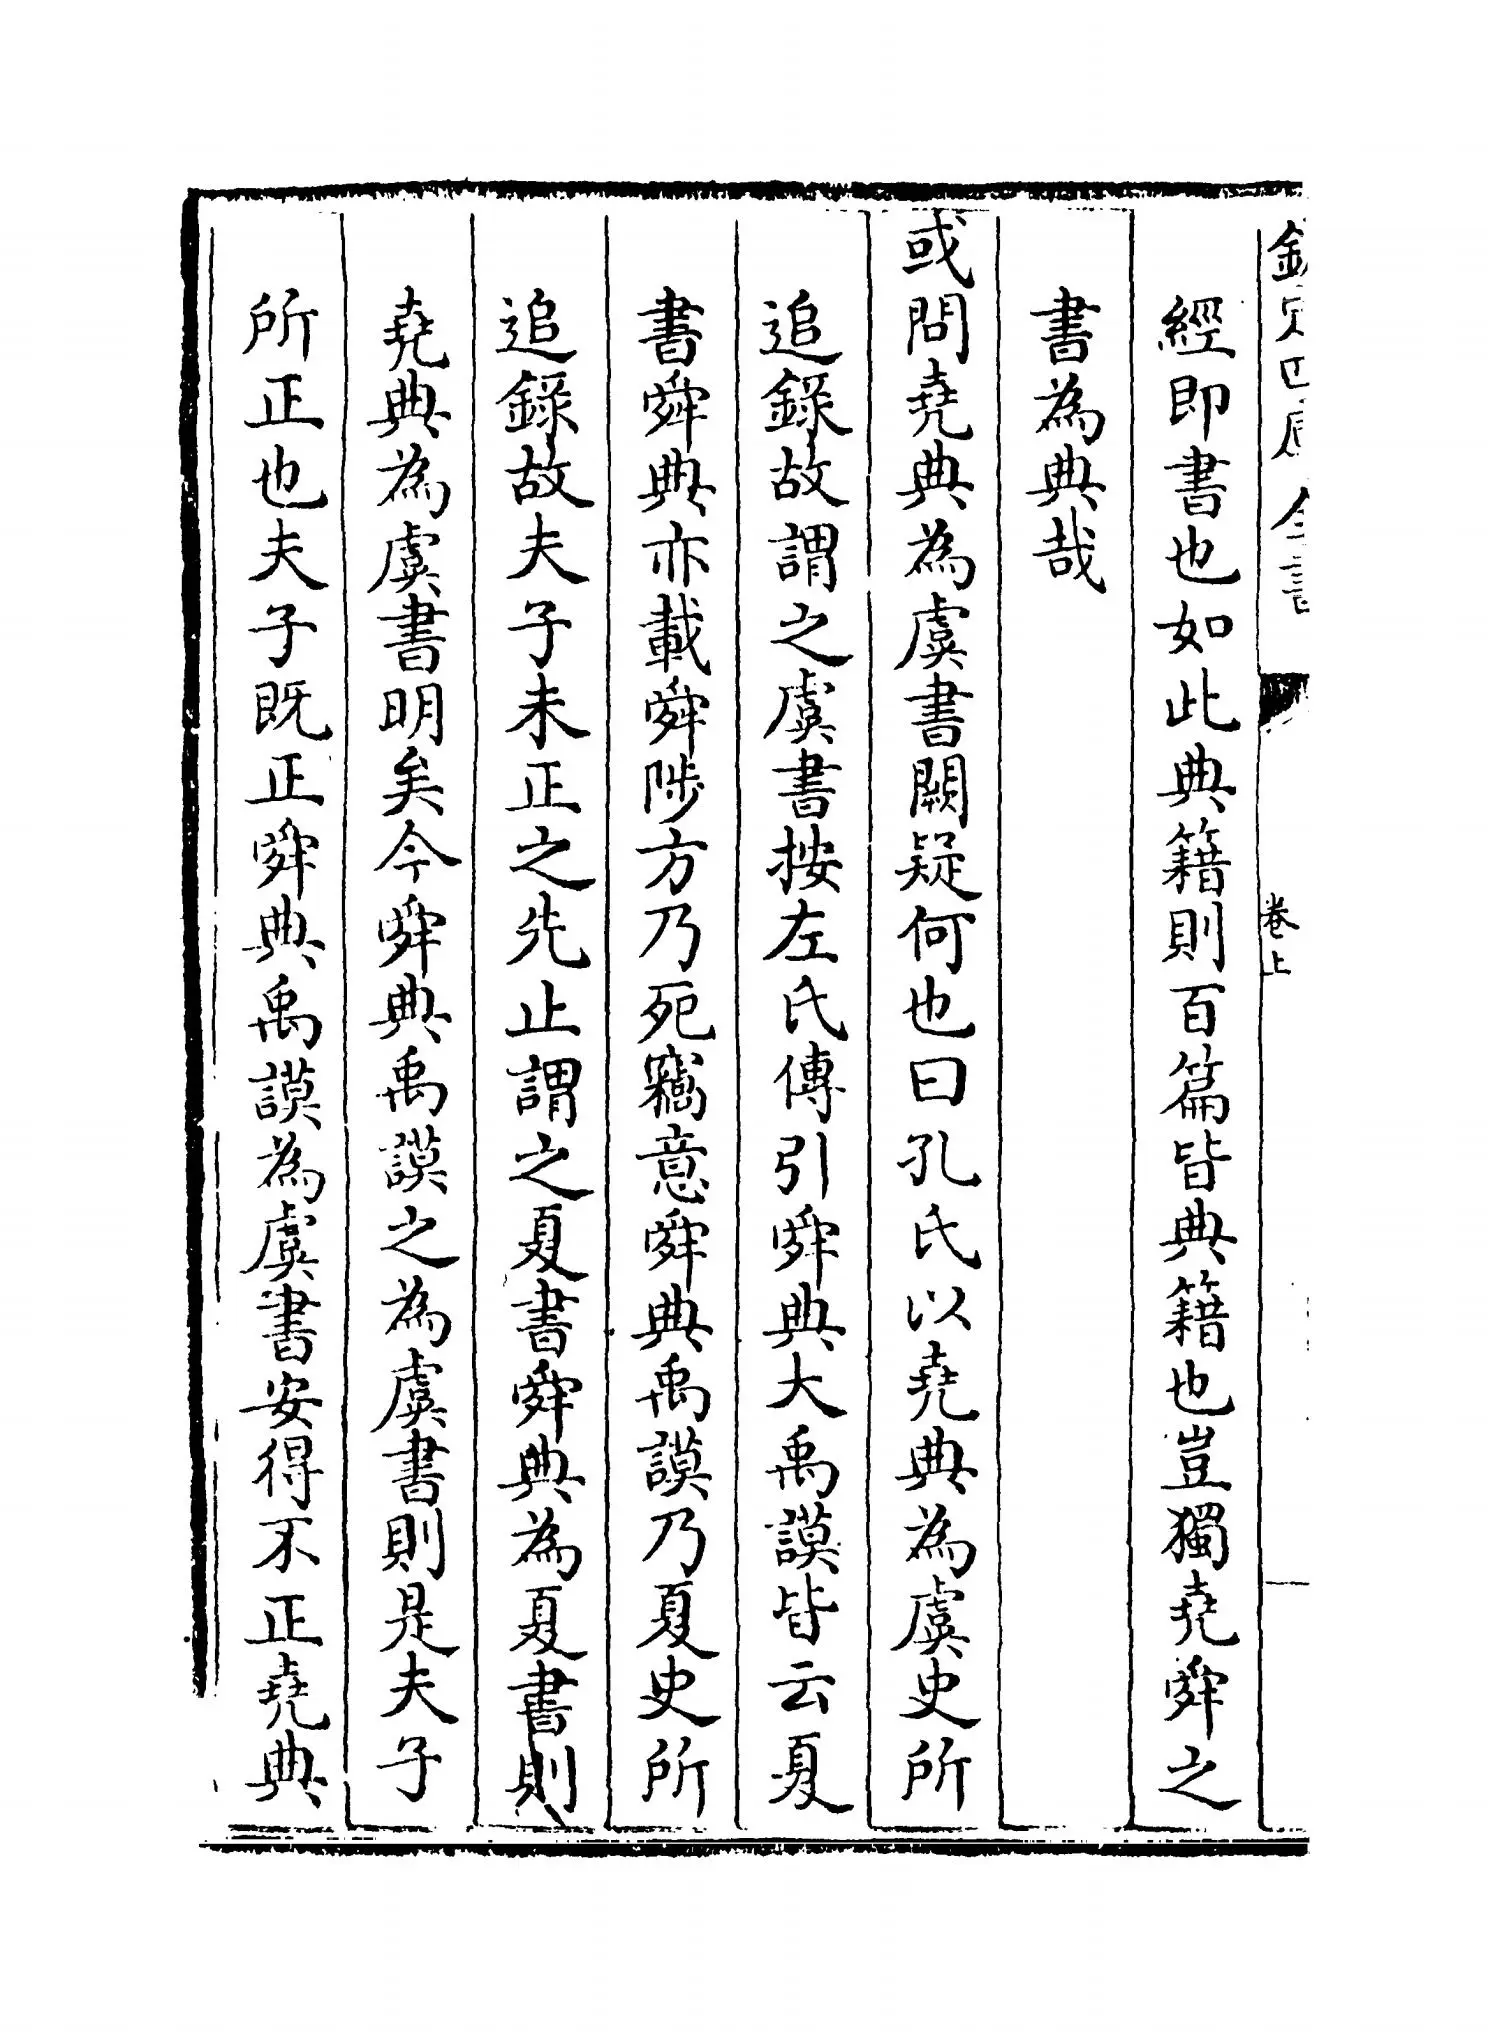 欽定四庫全書 卷上
經即書也如此典籍則百篇皆典籍也豈獨堯舜之
書為典哉
或問堯典為虞書闕疑何也曰孔氏以堯典為虞史所
追錄故謂之虞書按左氏傳引舜典大禹謨皆云夏
書舜典亦載舜陟方乃死竊意舜典禹謨乃夏史所
追錄故夫子未正之先止謂之夏書舜典為夏書則
堯典為虞書明矣今舜典禹謨之為虞書則是夫子
所正也夫子既正舜典禹謨為虞書安得不正堯典